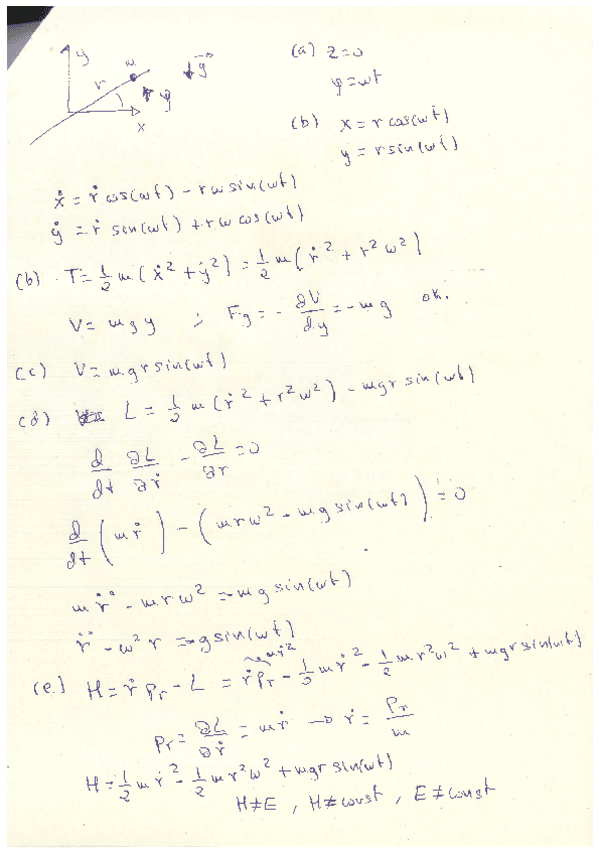 y
r
m
g⃗
φ
x
(a) z=0
φ=ωt
(b) x = r cos(ωt)
y = r sin(ωt)
ẋ = ṙ cos(ωt) - rω sin(ωt)
ẏ = ṙ sin(ωt) + rω cos(ωt)
(b) T = 1/2 m (ẋ² + ẏ²) = 1/2 m (ṙ² + r²ω²)
V = mgy ; Fg = - ∂V/dy = -mg ok.
(c) V = mgr sin(ωt)
(d) L = 1/2 m (ṙ² + r²ω²) - mgr sin(ωt)
d/dt ∂L/∂ṙ - ∂L/∂r = 0
d/dt (mṙ) - (mrω² - mg sin(ωt)) = 0
m r̈ - mrω² = -mg sin(ωt)
r̈ - ω² r = -g sin(ωt)
mṙ²
(e.) H = ṙ Pr - L = ṙPr - 1/2 mṙ² - 1/2 mr²ω² + mgr sin(ωt)
Pr = ∂L/∂ṙ = mṙ → ṙ = Pr/m
H = 1/2 mṙ² - 1/2 mr²ω² + mgr sin(ωt)
H≠E , H≠const , E≠const